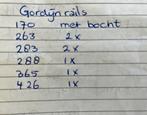 Gordijn rails
170 met bocht
263 2x
283 2x
288 1x
365 1x
426 1x